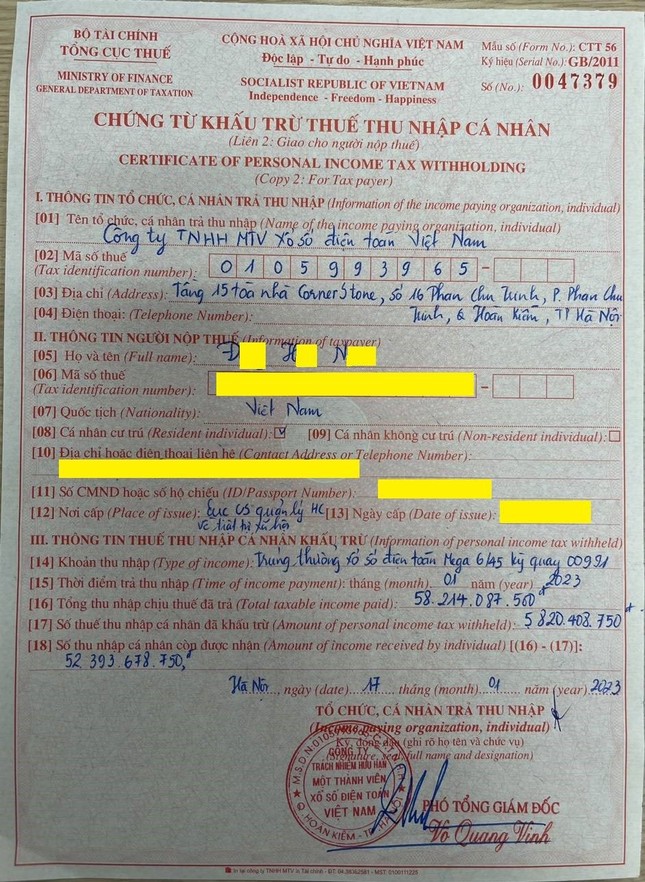 BỘ TÀI CHÍNH
TỔNG CỤC THUẾ
MINISTRY OF FINANCE
GENERAL DEPARTMENT OF TAXATION
CỘNG HOÀ XÃ HỘI CHỦ NGHĨA VIỆT NAM
Độc lập - Tự do - Hạnh phúc
SOCIALIST REPUBLIC OF VIETNAM
Independence - Freedom - Happiness
Mẫu số (Form No.): CTT 56
Ký hiệu (Serial No.): GB/2011
Số (No.): 0047379
CHỨNG TỪ KHẤU TRỪ THUẾ THU NHẬP CÁ NHÂN
(Liên 2: Giao cho người nộp thuế)
CERTIFICATE OF PERSONAL INCOME TAX WITHHOLDING
(Copy 2: For Tax payer)
I. THÔNG TIN TỔ CHỨC, CÁ NHÂN TRẢ THU NHẬP (Information of the income paying organization, individual)
[01] Tên tổ chức, cá nhân trả thu nhập (Name of the income paying organization, individual)
Công ty TNHH MTV Xổ số điện toán Việt Nam
[02] Mã số thuế
(Tax identification number): 0105993965 -
[03] Địa chỉ (Address): Tầng 15 toà nhà CornerStone, số 16 Phan Chu Trinh, P. Phan Chu
[04] Điện thoại: (Telephone Number): Trinh, Q Hoàn Kiếm, TP Hà Nội
II. THÔNG TIN NGƯỜI NỘP THUẾ (Information of taxpayer)
[05] Họ và tên (Full name): Đ H N
[06] Mã số thuế
(Tax identification number): -
[07] Quốc tịch (Nationality): Việt Nam
[08] Cá nhân cư trú (Resident individual): [09] Cá nhân không cư trú (Non-resident individual):
[10] Địa chỉ hoặc điện thoại liên hệ (Contact Address or Telephone Number):
[11] Số CMND hoặc số hộ chiếu (ID/Passport Number):
[12] Nơi cấp (Place of issue): Cục CS quản lý HC [13] Ngày cấp (Date of issue):
về trật tự xã hội
III. THÔNG TIN THUẾ THU NHẬP CÁ NHÂN KHẤU TRỪ (Information of personal income tax withheld)
[14] Khoản thu nhập (Type of income): Trúng thưởng xổ số điện toán Mega 6/45 kỳ quay 00991
[15] Thời điểm trả thu nhập (Time of income payment): tháng (month). 01 năm (year) 2023
[16] Tổng thu nhập chịu thuế đã trả (Total taxable income paid): 58.214.087.500đ
[17] Số thuế thu nhập cá nhân đã khấu trừ (Amount of personal income tax withheld): 5 820.408.750đ
[18] Số thu nhập cá nhân còn được nhận (Amount of income received by individual) [(16) - (17)]:
52.393.678.750đ
Hà Nội, ngày (date) 17 tháng (month) 01 năm (year) 2023
TỔ CHỨC, CÁ NHÂN TRẢ THU NHẬP
(Income paying organization, individual)
Ký, đóng dấu (ghi rõ họ tên và chức vụ)
(Signature, seal, full name and designation)
CÔNG TY
TRÁCH NHIỆM HỮU HẠN
MỘT THÀNH VIÊN
XỔ SỐ ĐIỆN TOÁN
VIỆT NAM
Q. HOÀN KIẾM - TP. HÀ NỘI
PHÓ TỔNG GIÁM ĐỐC
Võ Quang Vinh
In tại công ty TNHH MTV In Tài chính - ĐT: